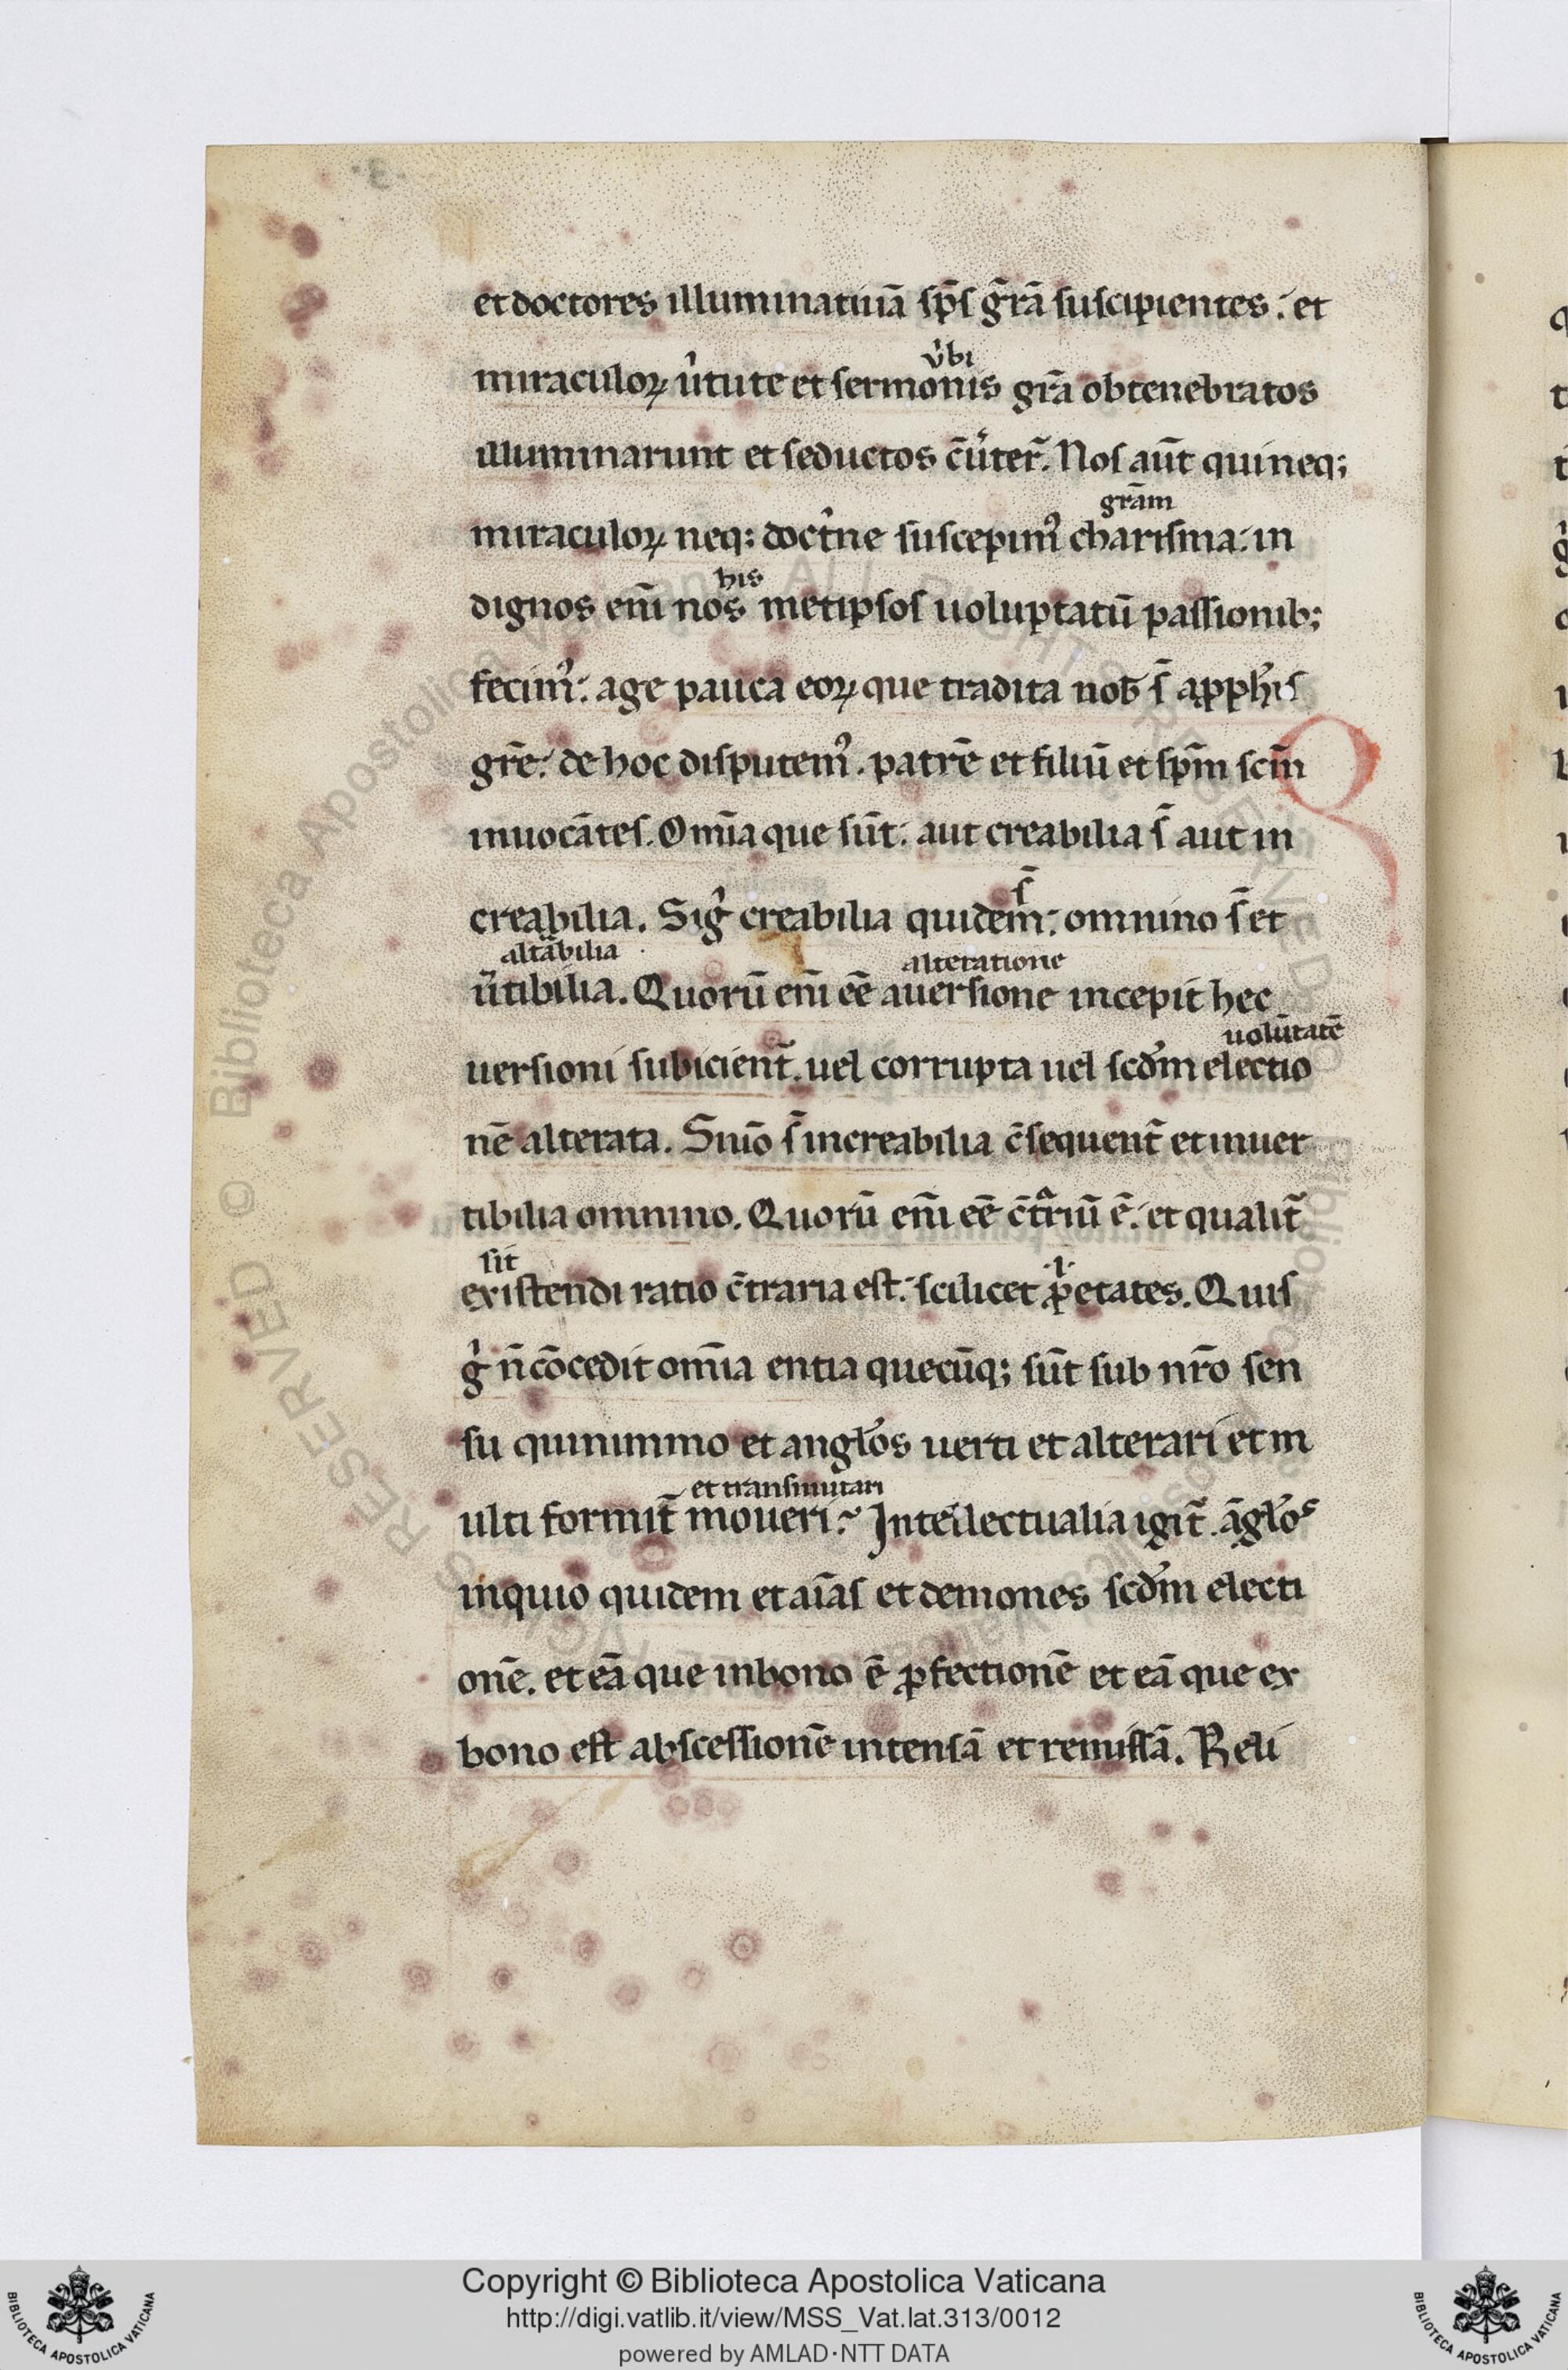 et doctores illuminatiuā sp̄s gr̄ā suscipientes : et
v̉bi
miraculoꝝ u̓tute et sermonis gr̄a obtenebratos
illuminarunt et seductos c̄u̓ter̄. Nos aūt qui neq;
gr̄am
miraculoꝝ neq; doct̓ne suscepim᾽ charisma : in
his
dignos em̄ nos metipsos uoluptatū passionib;
fecim᾽ : age pauca eoꝝ que tradita nob̄ s̄ a ꝓph̓is
gr̄e : de hoc disputem᾽. patrē et filiū et sp̄m sc̄m
inuocātes. Om̄ia que sūt : aut creabilia s̄ aut in
s̄
creabilia. Sig̓ creabilia quidem : omnino s̄ et
altābilia alteratione
u̓tibilia. Quorū em̄ eē auersione incepit hec
uolūtatē
uersioni subicient̄. uel corrupta uel scd̓m electio
nē alterata. Siuo s̄ increabilia c̄sequent̄ et inuer
tibilia omnino. Quorū em̄ eē c̄triū ē : et qualit̄
sit ·i·
existendi ratio c̄traria est : scilicet ꝓetates. Quis
g̓ n̄ cōcedit om̄ia entia quecūq; sūt sub nr̄o sen
su quinimmo et angl̓os uerti et alterari et m
et transmutari
ulti formit̄ moueri : Intellectualia igit̄. āgl̓os
inquio quidem et aīas et demones scd̓m electi
onē. et eā que in bono ē ꝓfectionē et eā que ex
bono est abscessionē intensā et remissā. Reli
Copyright © Biblioteca Apostolica Vaticana
http://digi.vatlib.it/view/MSS_Vat.lat.313/0012
powered by AMLAD·NTT DATA